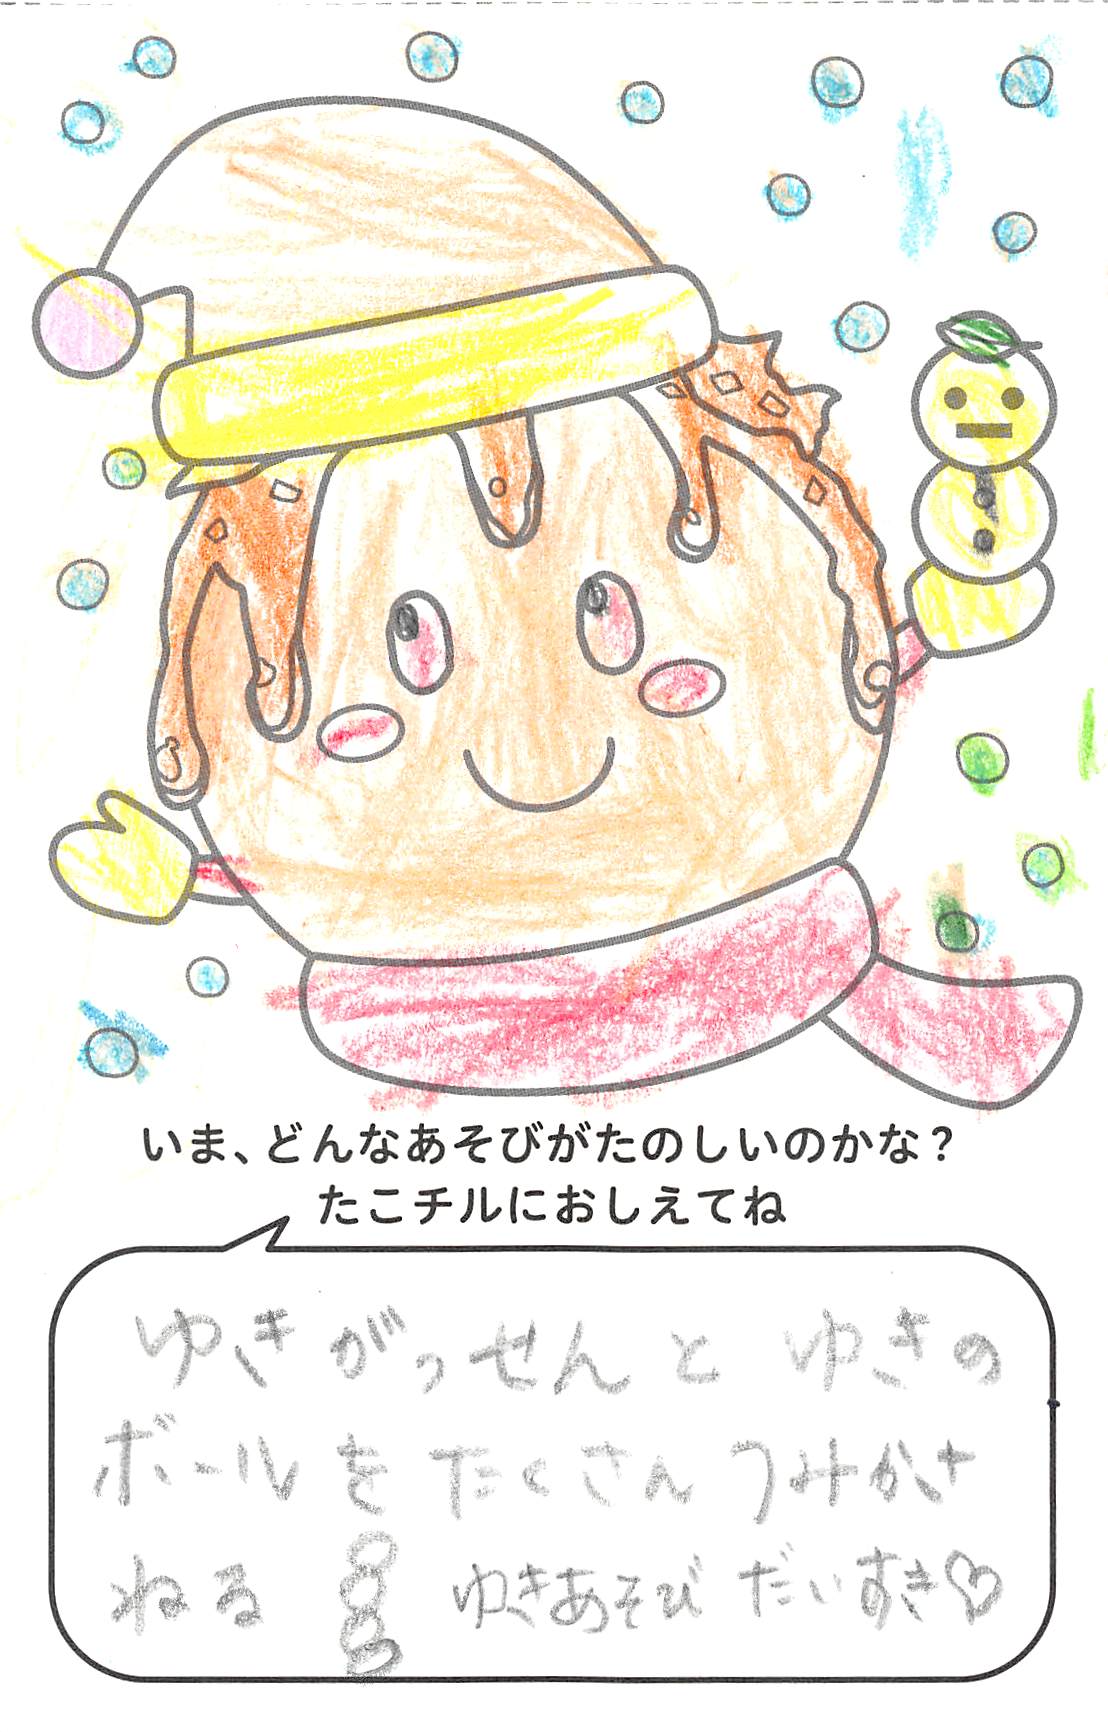 いま、どんなあそびがたのしいのかな？
たこチルにおしえてね
ゆきがっせんとゆきの
ボールをたくさんつみかさ
ねる ゆきあそびだいすき♡